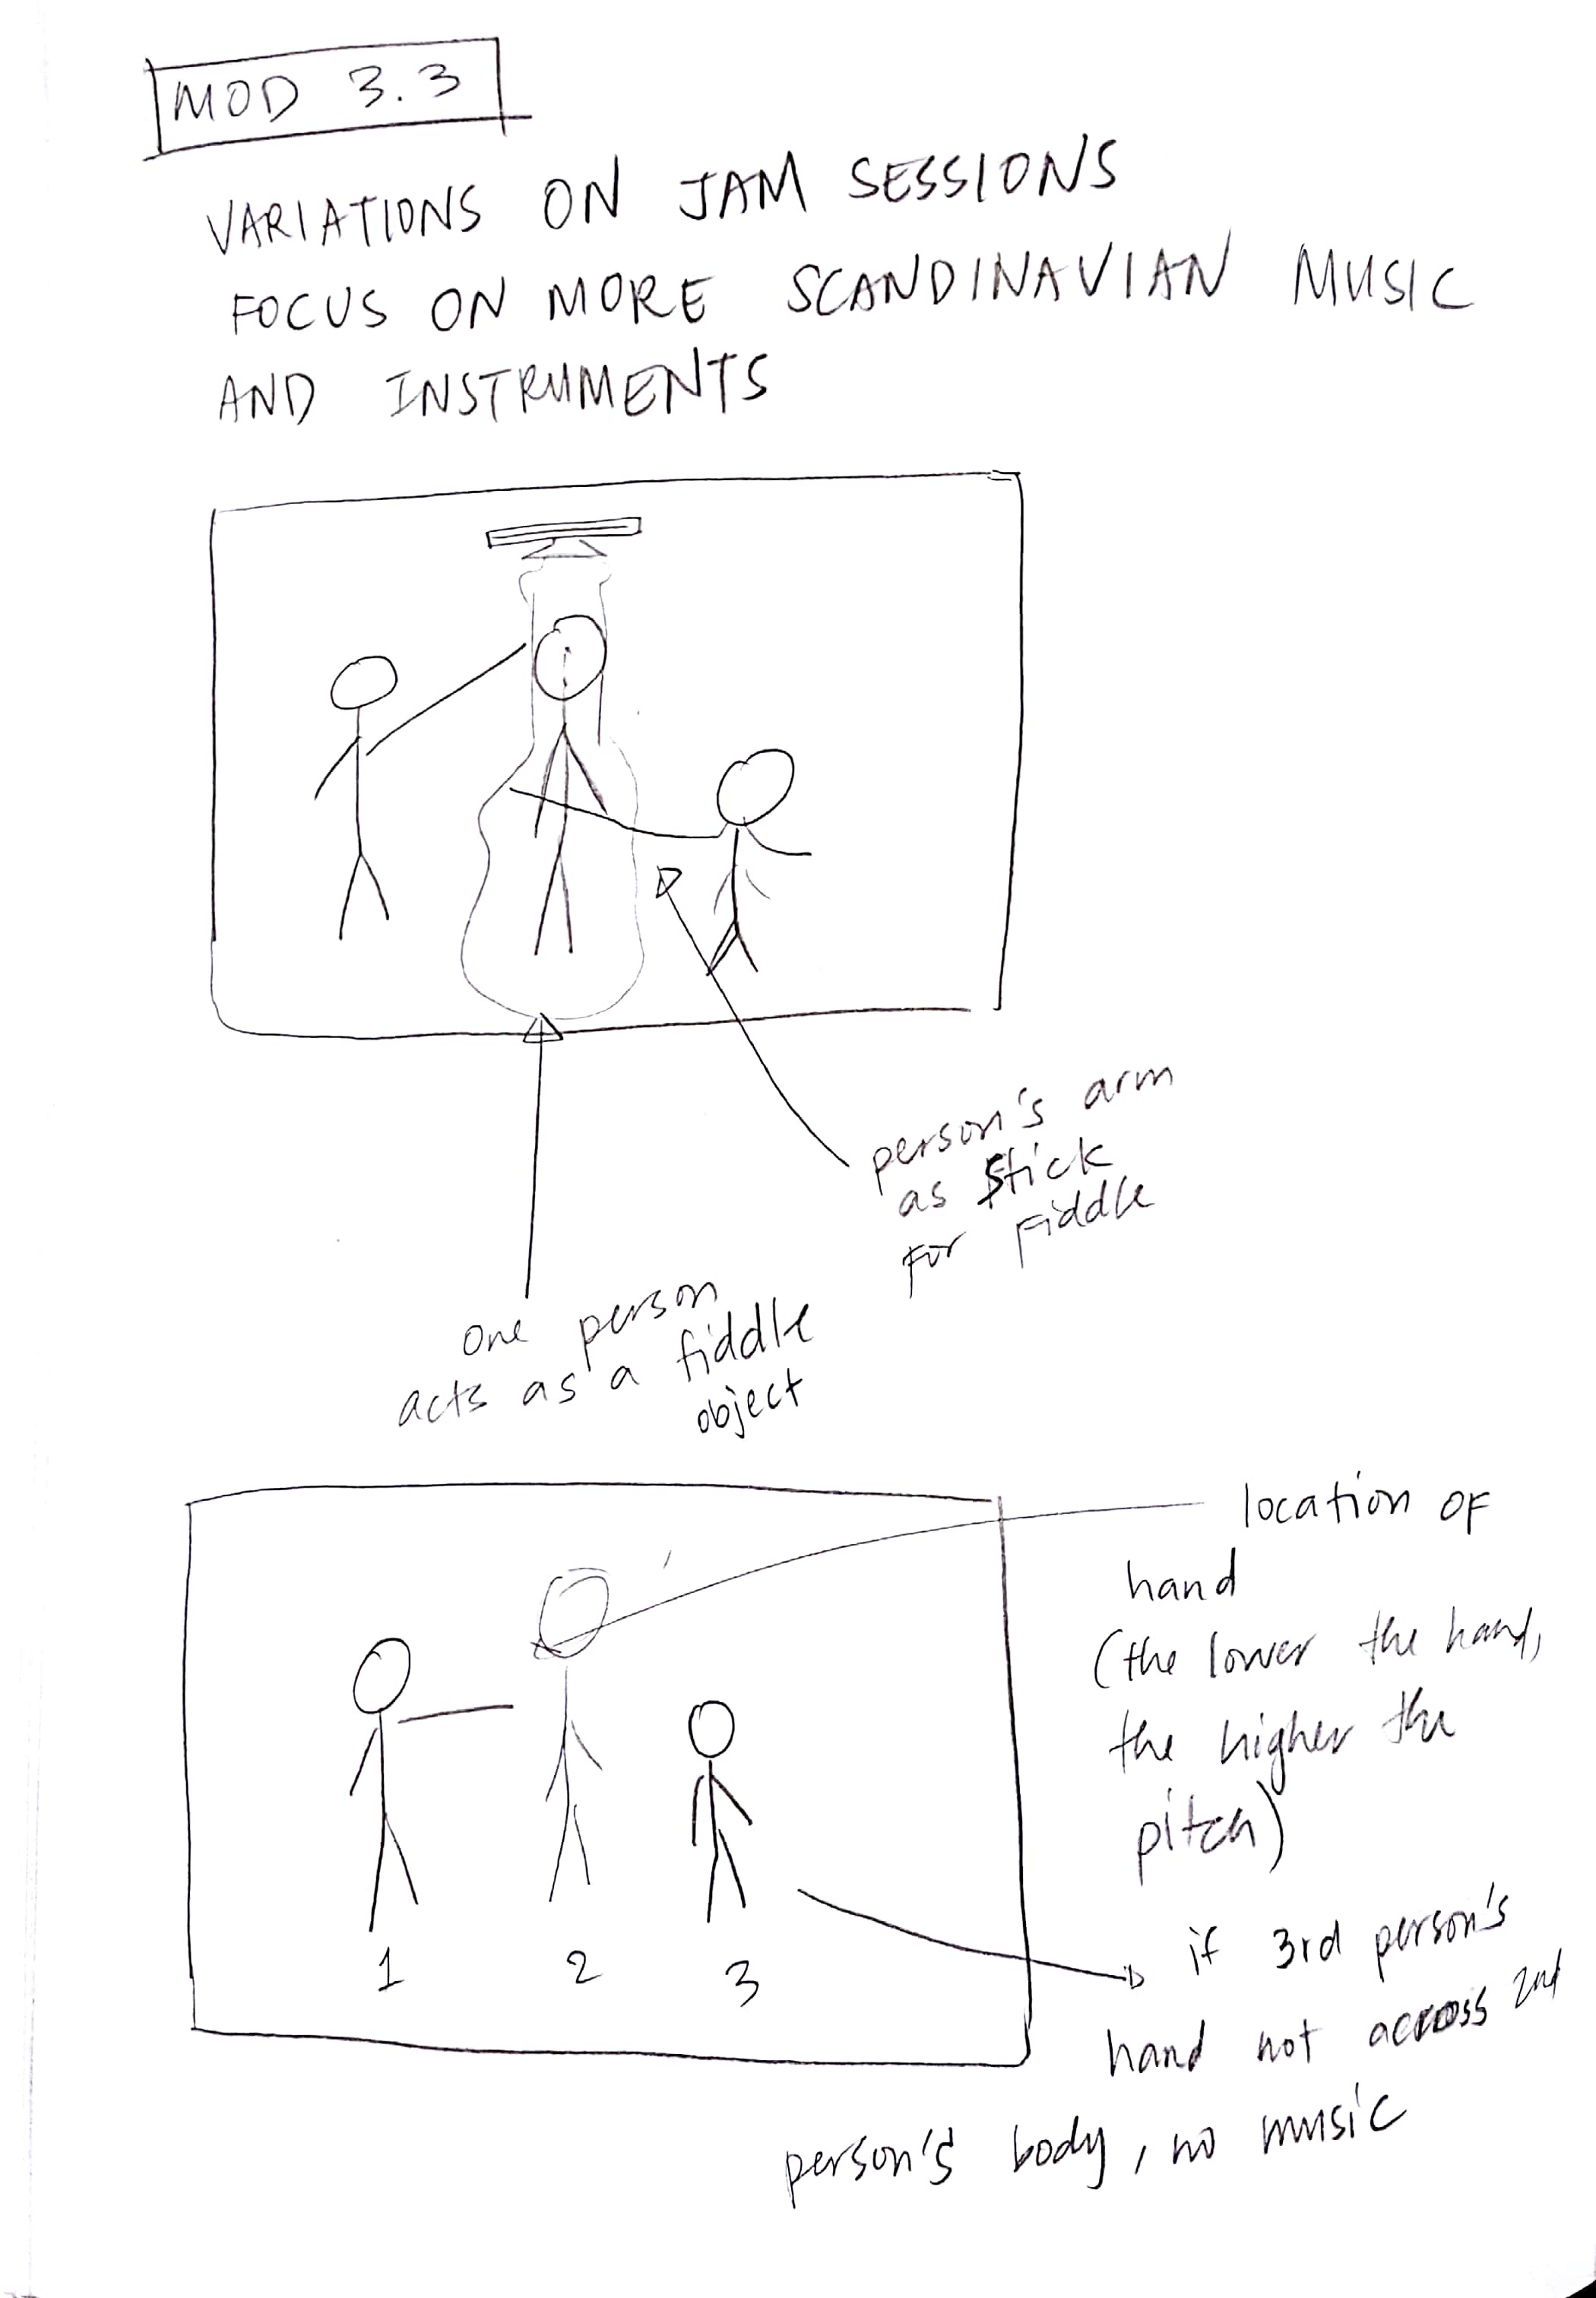 MOD 3.3
VARIATIONS ON JAM SESSIONS
FOCUS ON MORE SCANDINAVIAN MUSIC
AND INSTRUMENTS
person's arm
as stick
for fiddle
one person
acts as a fiddle
object
location of
hand
(the lower the hand,
the higher the
pitch)
1 2 3
if 3rd person's
hand not across 2nd
person's body, no music